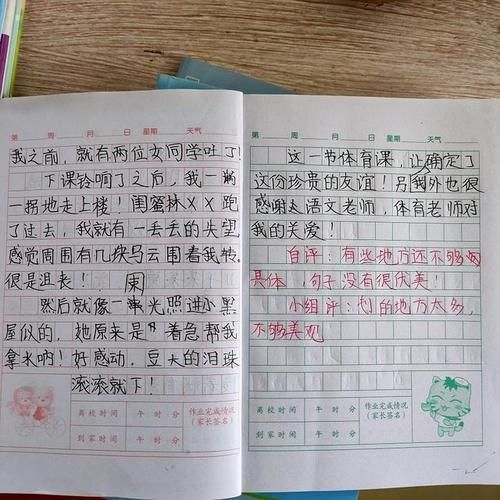 第 周 月 日 星期 天气
我之前，就有两位女同学吐了！
下课铃响了之后，我一瘸
一拐地走上楼！闺蜜林XX跑
了过去，我就有一丢丢的失望
感觉周围有几块乌云围着我转。
很是沮丧！
然后就像一束光照进小黑
屋似的，她原来是着急帮我
拿水呐！好感动，豆大的泪珠
滚滚就下！
离校时间 午 时 分
到家时间 午 时 分
作业完成情况
（家长签名）
第 周 月 日 星期 天气
这一节体育课，让确定了
这份珍贵的友谊！另我外也很
感谢语文老师，体育老师对
我的关爱！
自评：有些地方还不够
具体，句子没有很优美！
小组评：的地方太多，
不够美观
离校时间 午 时 分
到家时间 午 时 分
作业完成情况
（家长签名）